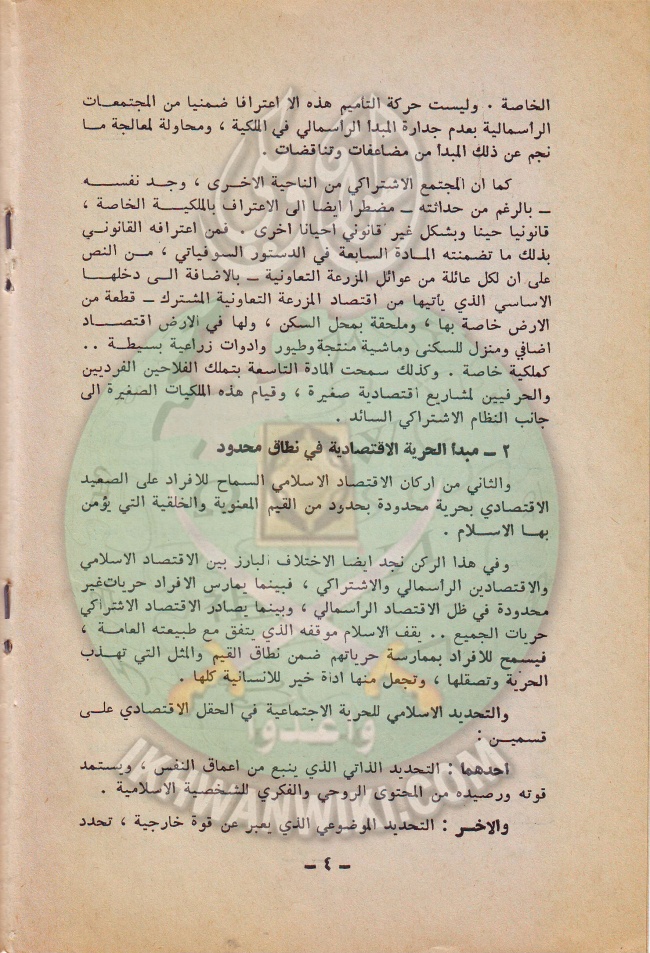 الخاصة . وليست حركة التأميم هذه الا اعترافا ضمنيا من المجتمعات
الرأسمالية بعدم جدارة المبدأ الرأسمالي في الملكية ، ومحاولة لمعالجة ما
نجم عن ذلك المبدأ من مضاعفات وتناقضات .
كما ان المجتمع الاشتراكي من الناحية الاخرى ، وجد نفسه
ــ بالرغم من حداثته ــ مضطرا ايضا الى الاعتراف بالملكية الخاصة ،
قانونيا حينا وبشكل غير قانوني أحيانا اخرى . فمن اعترافه القانوني
بذلك ما تضمنته المادة السابعة في الدستور السوفياتي ، من النص
على ان لكل عائلة من عوائل المزرعة التعاونية ــ بالاضافة الى دخلها
الاساسي الذي يأتيها من اقتصاد المزرعة التعاونية المشترك ــ قطعة من
الارض خاصة بها ، وملحقة بمحل السكن ، ولها في الارض اقتصاد
اضافي ومنزل للسكنى وماشية منتجة وطيور وادوات زراعية بسيطة ..
كملكية خاصة . وكذلك سمحت المادة التاسعة بتملك الفلاحين الفرديين
والحرفيين لمشاريع اقتصادية صغيرة ، وقيام هذه الملكيات الصغيرة الى
جانب النظام الاشتراكي السائد .
٢ ــ مبدأ الحرية الاقتصادية في نطاق محدود
والثاني من اركان الاقتصاد الاسلامي السماح للافراد على الصعيد
الاقتصادي بحرية محدودة بحدود من القيم المعنوية والخلقية التي يؤمن
بها الاسلام .
وفي هذا الركن نجد ايضا الاختلاف البارز بين الاقتصاد الاسلامي
والاقتصادين الرأسمالي والاشتراكي ، فبينما يمارس الافراد حريات غير
محدودة في ظل الاقتصاد الرأسمالي ، وبينما يصادر الاقتصاد الاشتراكي
حريات الجميع .. يقف الاسلام موقفه الذي يتفق مع طبيعته العامة ،
فيسمح للافراد بممارسة حرياتهم ضمن نطاق القيم والمثل التي تهذب
الحرية وتصقلها ، وتجعل منها اداة خير للانسانية كلها .
والتحديد الاسلامي للحرية الاجتماعية في الحقل الاقتصادي على
قسمين :
أحدهما : التحديد الذاتي الذي ينبع من أعماق النفس ، ويستمد
قوته ورصيده من المحتوى الروحي والفكري للشخصية الاسلامية .
والاخر : التحديد الموضوعي الذي يعبر عن قوة خارجية ، تحدد
ــ ٤ ــ
وأعدوا
IKHWANWIKI.COM